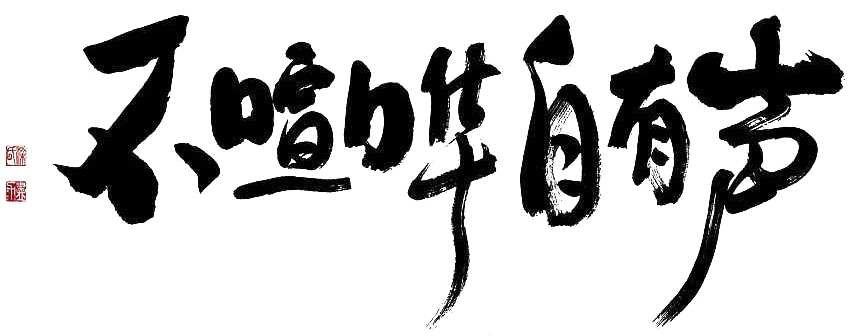 不喧哗自有声